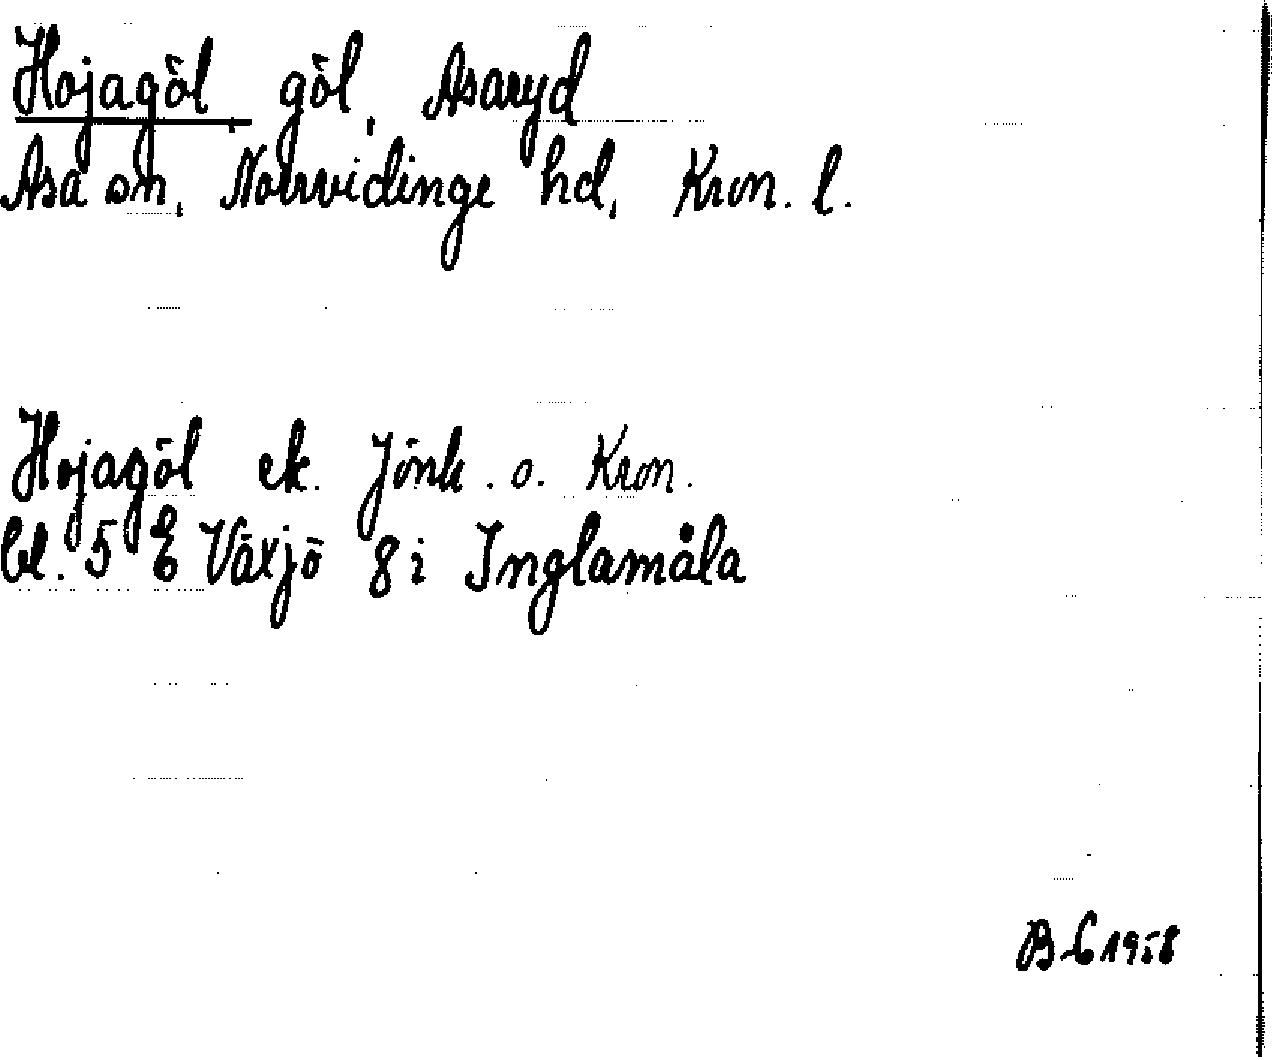 Hojagöl, göl, Asaryd
Asa sn, Norrvidinge hd, Kron. l.
Hojagöl ek. Jönk. o. Kron.
bl. 5 E Växjö 8 i Inglamåla
B-C 1958